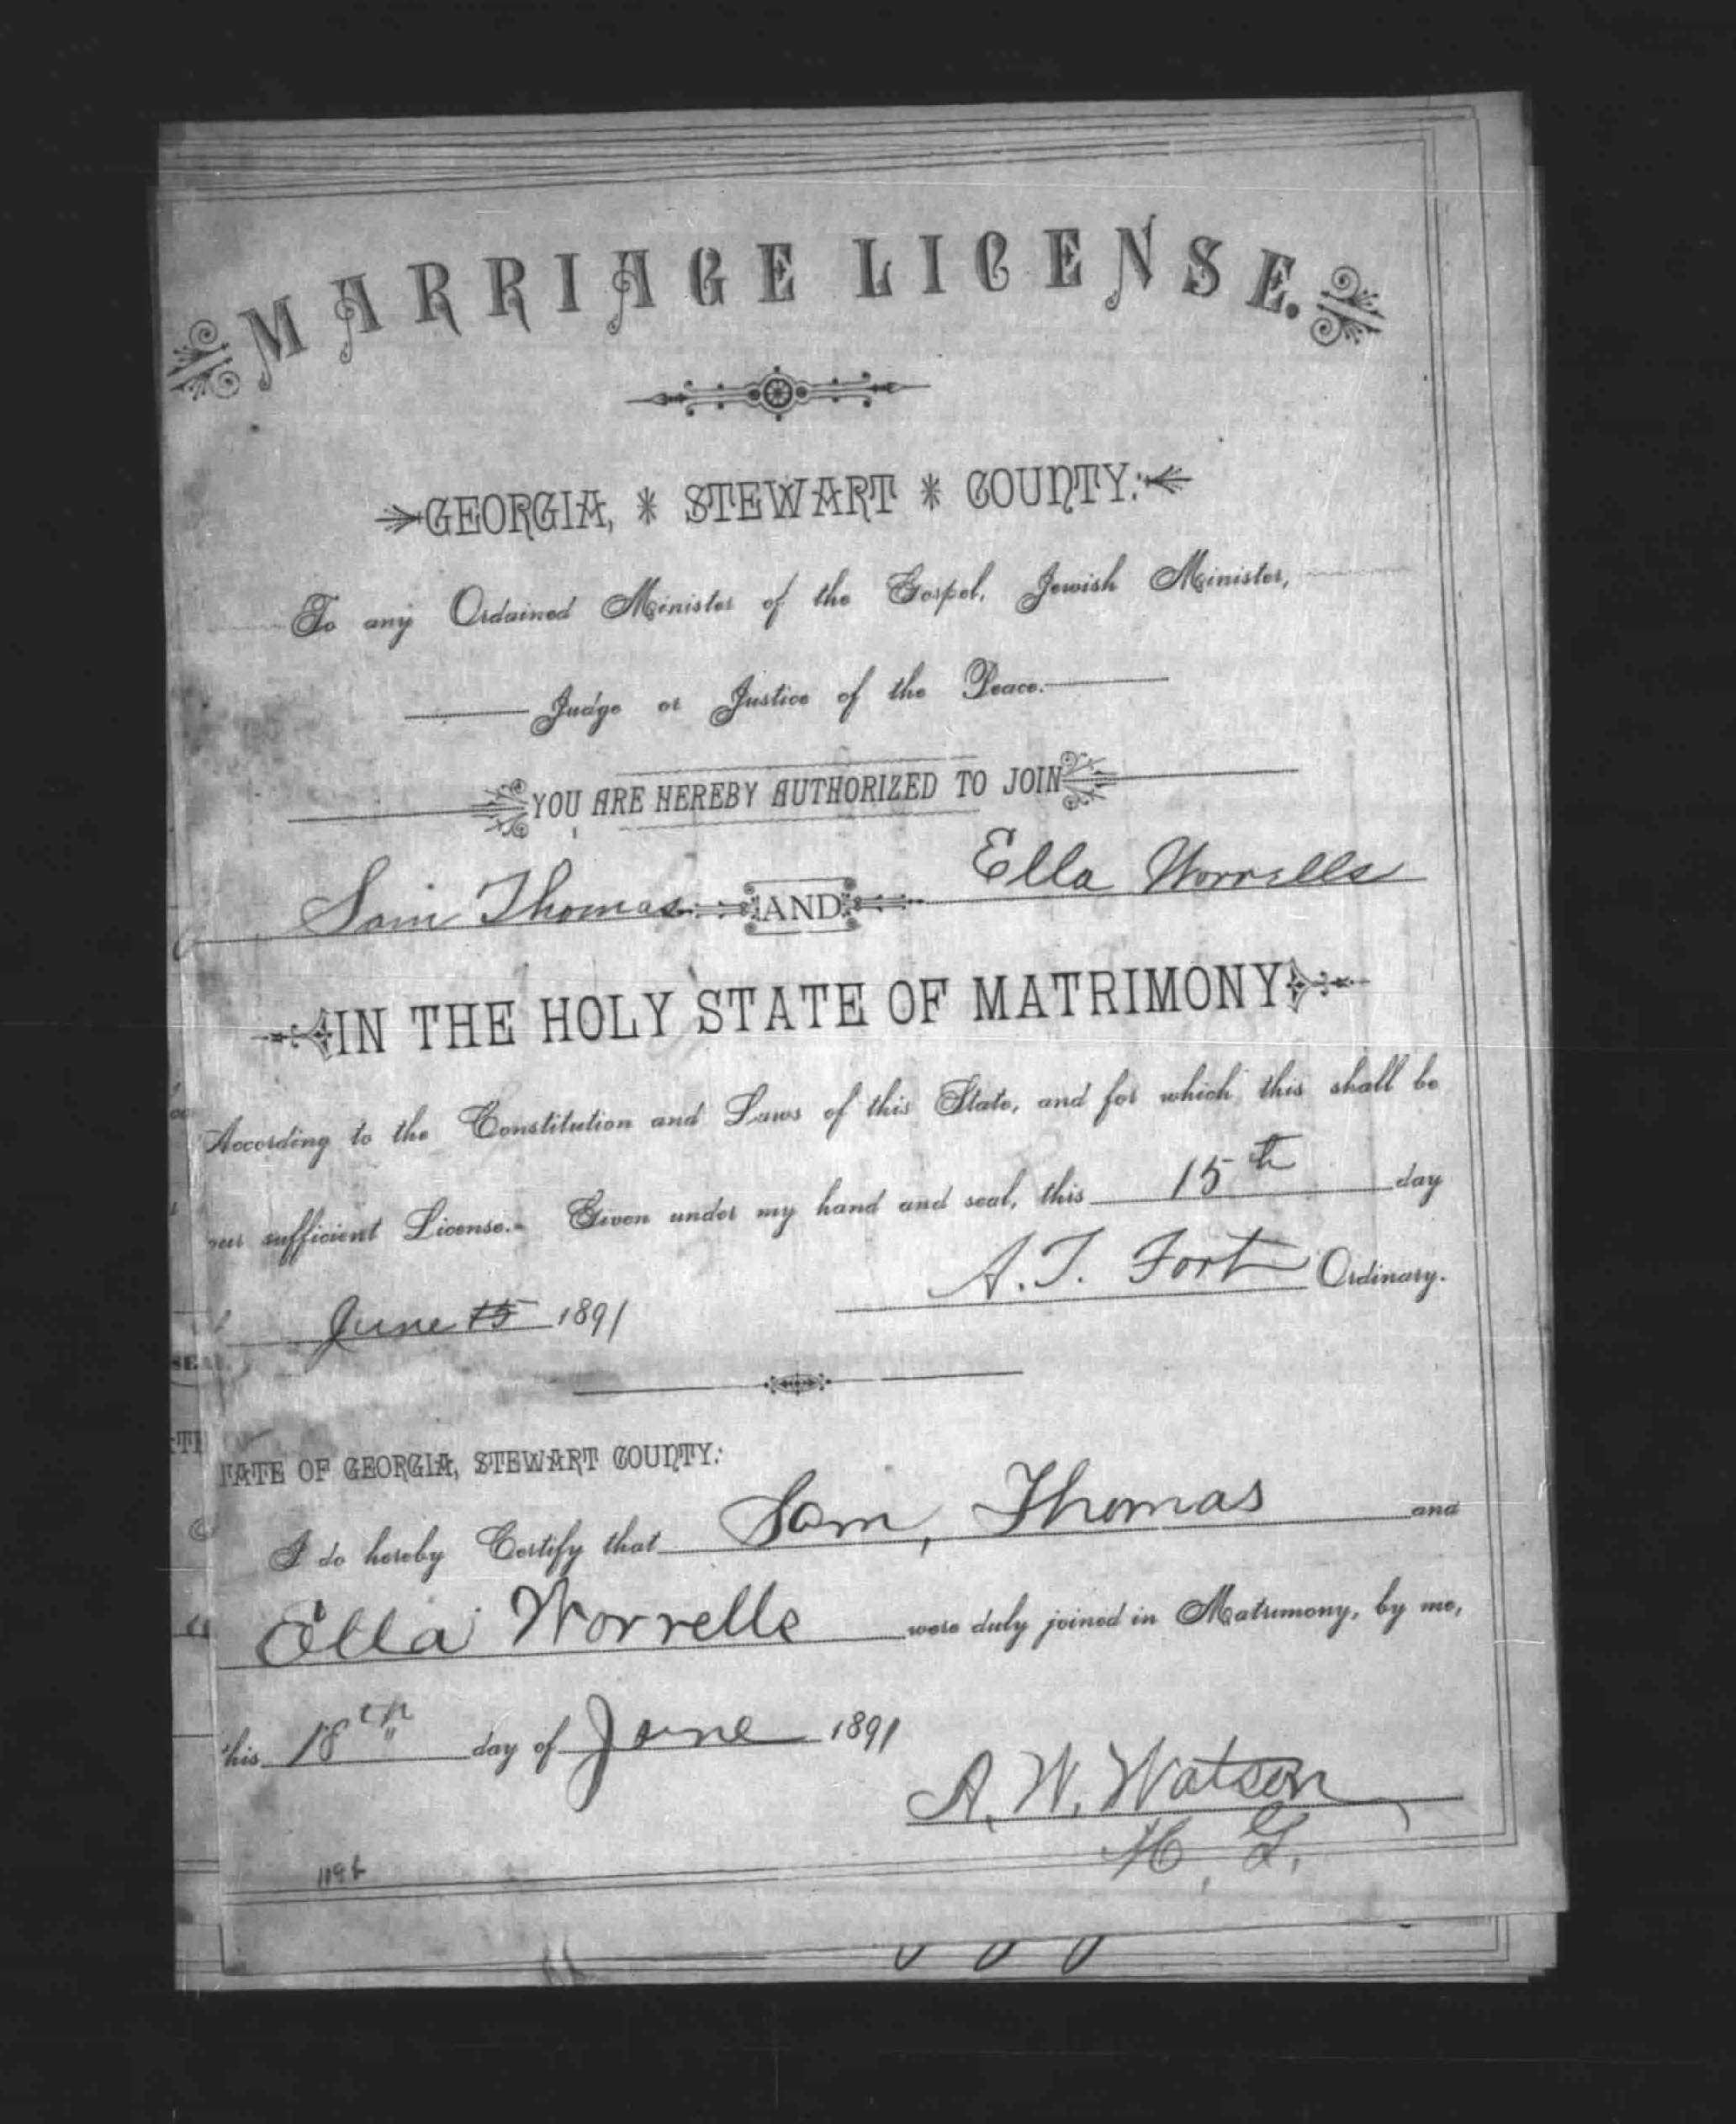 MARRIAGE LICENSE.
GEORGIA, * STEWART * COUNTY:
To any Ordained Minister of the Gospel, Jewish Minister,
Judge or Justice of the Peace.
YOU ARE HEREBY AUTHORIZED TO JOIN
Sam Thomas AND Ella Worrells
IN THE HOLY STATE OF MATRIMONY
According to the Constitution and Laws of this State, and for which this shall be
sufficient License. Given under my hand and seal, this 15th day
June 15 1891 A. T. Fort Ordinary.
TATE OF GEORGIA, STEWART COUNTY:
I do hereby Certify that Sam, Thomas and
Ella Worrells were duly joined in Matrimony, by me,
this 18th day of June 1891
A. W. Watson
M. G.